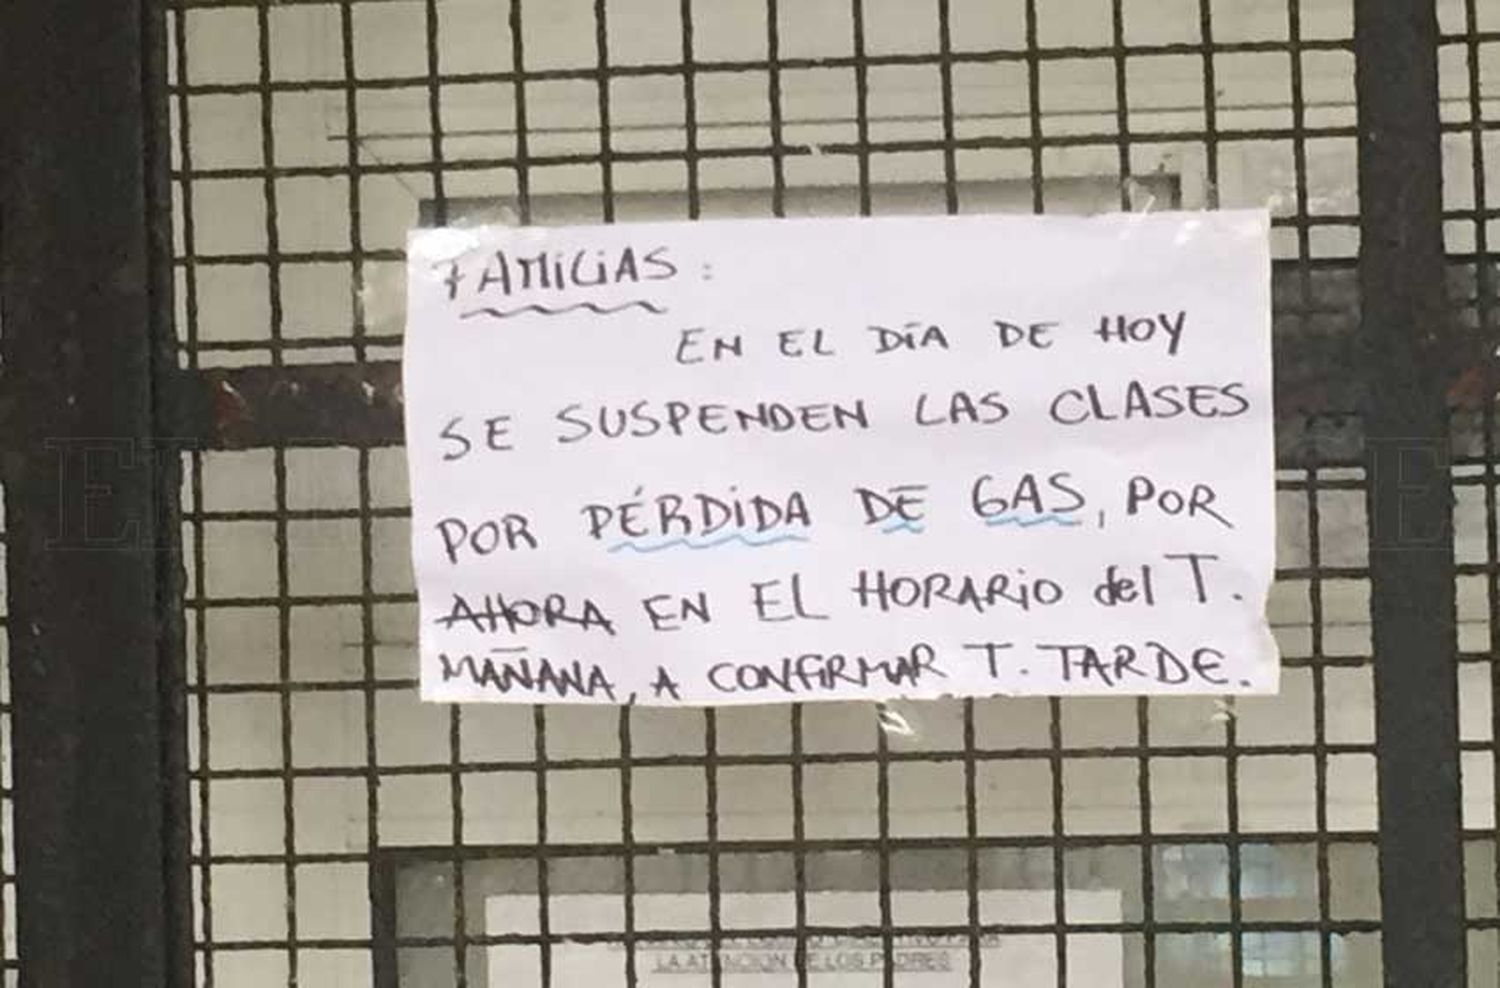 FAMiLiAS:
EN EL DÍA DE HOY
SE SUSPENDEN LAS CLASES
POR PÉRDiDA DE GAS, POR
AHORA EN EL HORARiO del T.
MAÑANA, A CONFiRMAR T. TARDE.
LA ATENCION DE LOS PADRES